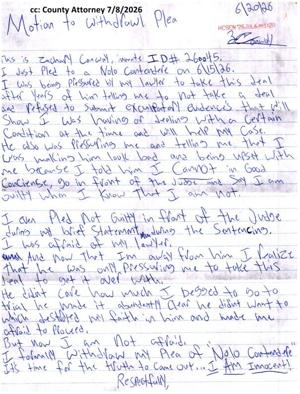 cc: County Attorney 7/8/2026
6/20/26
Motion to Withdrawl Plea
This is Zachary inmate ID# 260045.
I Just Pled to a Nolo Contendere on 6/15/26.
I was being pressured by my lawyer to take this deal
after years of him telling me to not take a deal
and refused to submit exculpatory evidences that will
show I was having or dealing with a certain
condition at the time and will help my case.
He also was pressuring me and telling me that I
was making him look bad and being upset with
me because I told him I Cannot in Good
Concience, go in front of the Judge and Say I am
guilty when I know that I aim not.
I even Pled Not Guilty in front of the Judge
during my brief Statement during the Sentencing.
I was afraid of my lawyer.
And now that Im away from him I realize
that he was only pressuring me to take this
deal to get it over with.
He didnt care how much I begged to go to
trial he made it abundantly clear he didnt want to
which destroyed my faith in him and made me
afraid to proceed.
But now I am Not afraid.
I formally withdraw my Plea of "Nolo Contendere"
It's time for the truth to come out... I Am Innocent!
Respectfully,